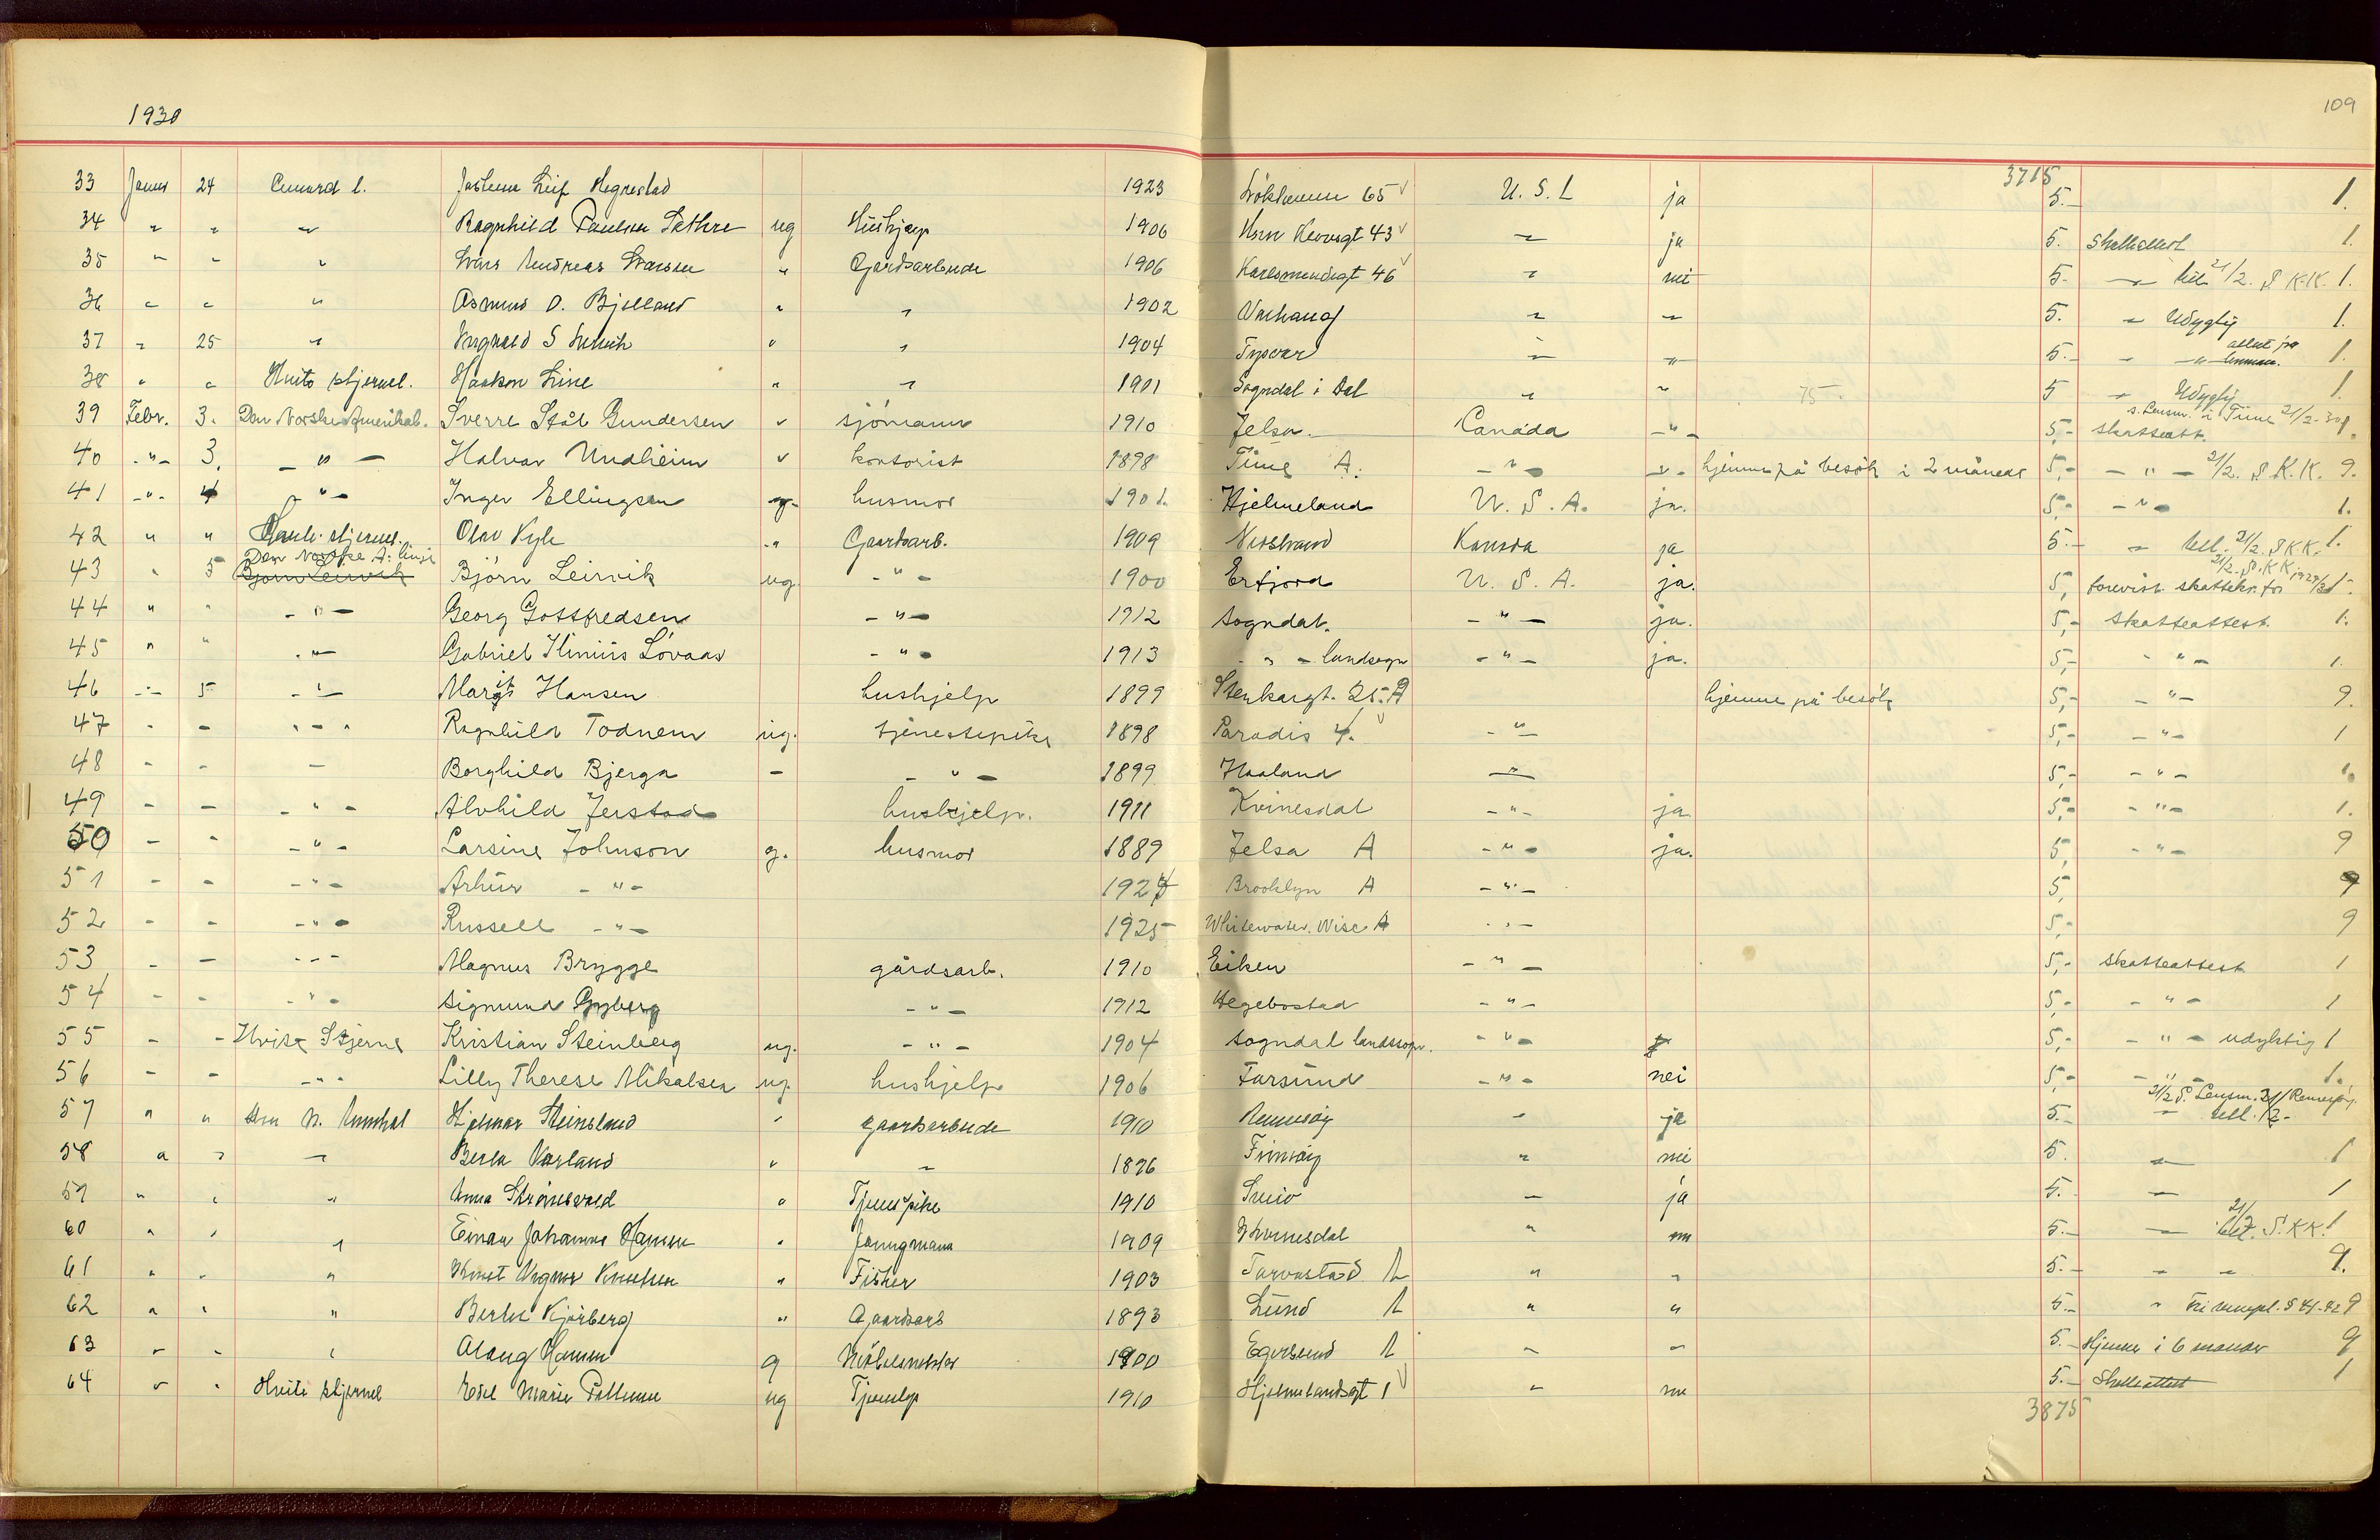 1930
109
3715
33 Janur 24 Cunard l. Hegrestad 1923 65 U. S. A ja 5.- 1.
34 " " " Ragnhild Paulsen Sæthre ug Hushjælp 1906 43 " ja 5. Skatteattest 1.
35 " " " Lars Andreas Larsen " Gardsarbeide 1906 46 " nei 5. - 21/2. S.K.K. 1.
36 " " " Asmund O. Bjelland " " 1902 Varhaug " " 5. - Udygtig 1.
37 " 25 " S " " 1904 Tysvær " " 5.- - " - attest fra lensman. 1.
38 " " Hvite stjernel. Haakon Line " " 1901 Sogndal i Dal " " 75- 5 - Udygtig 1.
39 Febr. 3. Den Norske Amerikal. Sverre Stål Gundersen " sjömann 1910 Jelsa. Canada - " - 5,- skatteatt. s. Lensm. i Time 21/2-30
40 - " - 3. - " - Halvar Undheim " kontorist 1898 Time A. - " - - " - hjemme på besök i 2 måneder 5,- - " - 21/2. S.K.K. 9.
41 - " - 4 - " - Inger Ellingsen g. husmor 1901. Hjelmeland U. S. A. ja. 5,- - " - 1.
42 " " stjernel. Olav " Gaardsarb. 1909 Nedstrand Kanada ja 5.- - 21/2. S.K.K. 1.
43 " 5 Bjørn Leirvik Den Norske A. linje Björn Leirvik ug. - " - 1900 Erfjord U. S. A. ja. 5, forevist skattekv. for 1929/30 21/2. S.K.K. 1.
44 " " - " - Georg Gottfredsen - " - 1912 Sogndal. - " - ja. 5,- Skatteattest. 1.
45 " " - " - Gabriel Ilinius Lövaas - " - 1913 - " - landsogn - " - ja. 5,- - " - 1.
46 - " - 5 - " - Margit Hansen hushjelp 1899 Stenkargt. 25.A hjemme på besök 5,- - " - 9.
47 - - - " - Ragnhild Todnem ug. tjenestepike 1898 Paradis 4. - " - 5,- - " - 1
48 - - - Borghild Bjerga - - " - 1899 Haaland - " - 5,- - " - 1.
49 - - - " - Alvhild Jerstad hushjelp. 1911 Kvinesdal - " - ja 5,- - " - 1.
50 - - - " - Larsine Johnson g. husmor 1889 Jelsa A - " - ja. 5, - " - 9
51 - - - " - Arthur - " - 1924 Brooklyn A - " - 5, 9
52 - - - " - Russell - " - 1925 Whitewater. Wisc A - " - 5,- 9
53 - - - " - Magnus Brygge gårdsarb. 1910 Eiken - " - 5,- skatteattest 1
54 - - - " - Sigmund Gyberg - " - 1912 Hegebostad - " - 5,- - " - 1
55 - - Hvite Stjerne Kristian Steinberg ug. - " - 1904 Sogndal landssogn. - " - 5,- - " - udyktig 1
56 - - - " - Lilly Therese Mikalsen ug. hushjelp 1906 Farsund - " - nei 5,- - " - 1.
57 " " Den N. Hjalmar Steinsland " gaardsarbeide 1910 Rennesöy " ja 5.- 21/2 S. Lensm. i Rennesöy.
58 " " " Berta Varland " " 1896 Finnöig " nei 5. - 1
59 " " " Anna " Tjenespike 1910 " ja 5. - 1
60 " " " Einar Johannes Hansen " Jungmann 1909 Kvinesdal " 5.- - 21/2. S.K.K. 1
61 " " " Knut Knutsen " Fisker 1903 Torvastad A " " 5.- - - 9.
62 " " " Kjörberg " Gaardsarb 1893 Lund A " " 5.- " 9
63 " " " Hansen g Möbelsnekker 1900 Egersund A " " 5.- Hjemme i 6 maander 9
64 " " Hvite stjernel Edel Marie ug 1910 Hjelmelandsgt 1 " 5.- Skatteattest 1
3875